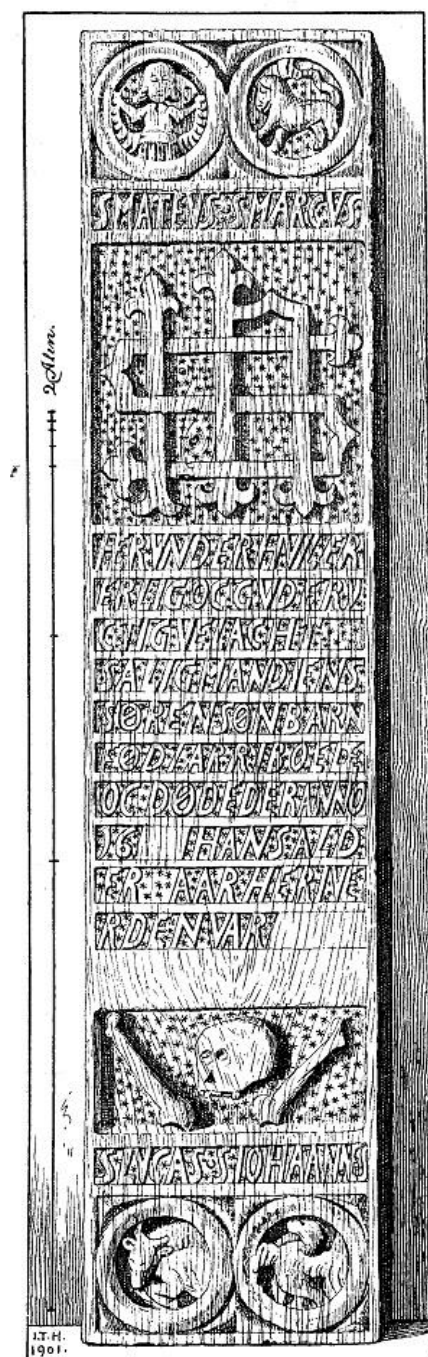 S MATEUS · S MARCVS
2 Alen.
HERVNDER HVILER
ERLIG OC GVDFRV
CTIG VE ACHT
SALIG MAND IENS
SØRENSØN BARN
FØD EAR RIBOEDE
OC DØDE DER ANNO
16 HANS ALD
ER AAR HER NE
RDEN VAR
S LVCAS · S IOHANNS
I.T.H.
1901.